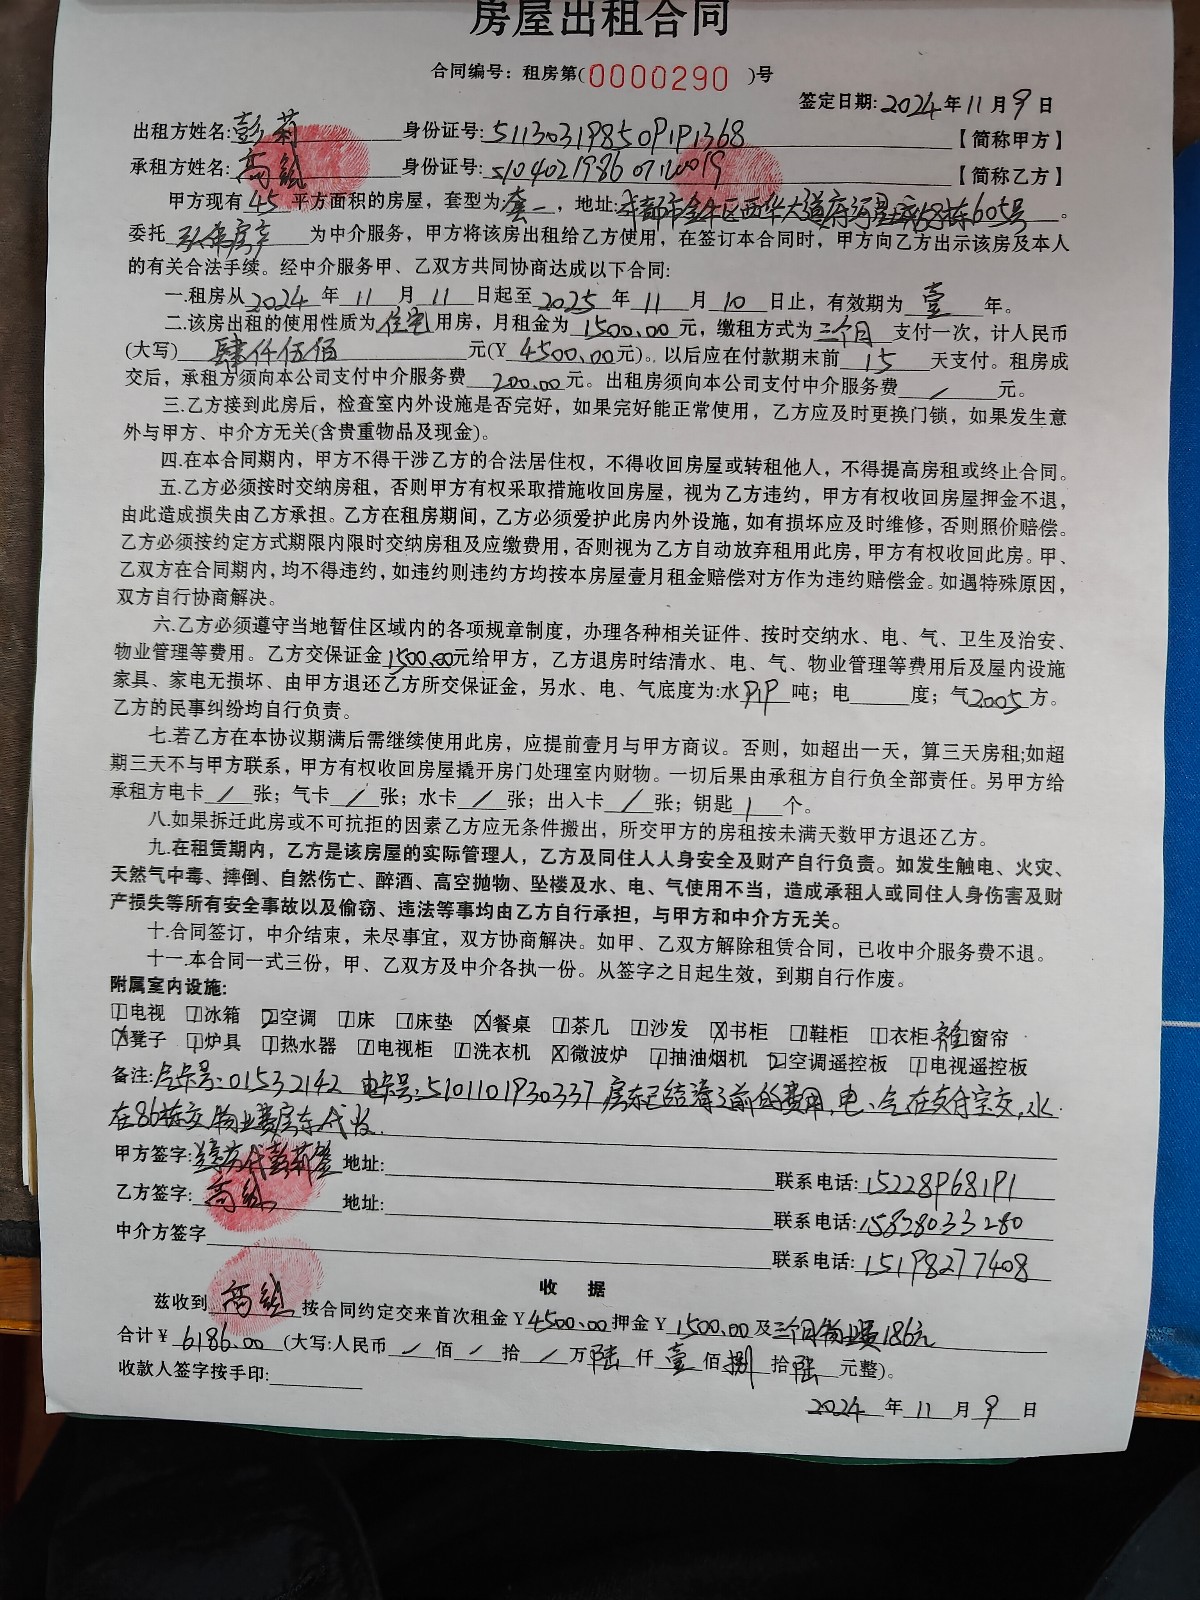 房屋出租合同
合同编号：租房第(0000290)号
签定日期:2024年11月9日
出租方姓名:彭莉 身份证号:511303198509191368 【简称甲方】
承租方姓名:高 身份证号:510402198607120019 【简称乙方】
甲方现有45平方面积的房屋，套型为套一，地址:成都市金牛区西华大道 68栋605号。
委托 房产 为中介服务，甲方将该房出租给乙方使用，在签订本合同时，甲方向乙方出示该房及本人
的有关合法手续。经中介服务甲、乙双方共同协商达成以下合同:
一.租房从2024年11月11日起至2025年11月10日止，有效期为壹年。
二.该房出租的使用性质为住宅用房，月租金为1500.00元，缴租方式为三个月支付一次，计人民币
(大写)肆仟伍佰元(¥4500.00元)。以后应在付款期末前15天支付。租房成
交后，承租方须向本公司支付中介服务费200.00元。出租房须向本公司支付中介服务费/元。
三.乙方接到此房后，检查室内外设施是否完好，如果完好能正常使用，乙方应及时更换门锁，如果发生意
外与甲方、中介方无关(含贵重物品及现金)。
四.在本合同期内，甲方不得干涉乙方的合法居住权，不得收回房屋或转租他人，不得提高房租或终止合同。
五.乙方必须按时交纳房租，否则甲方有权采取措施收回房屋，视为乙方违约，甲方有权收回房屋押金不退，
由此造成损失由乙方承担。乙方在租房期间，乙方必须爱护此房内外设施，如有损坏应及时维修，否则照价赔偿。
乙方必须按约定方式期限内限时交纳房租及应缴费用，否则视为乙方自动放弃租用此房，甲方有权收回此房。甲、
乙双方在合同期内，均不得违约，如违约则违约方均按本房屋壹月租金赔偿对方作为违约赔偿金。如遇特殊原因，
双方自行协商解决。
六.乙方必须遵守当地暂住区域内的各项规章制度，办理各种相关证件、按时交纳水、电、气、卫生及治安、
物业管理等费用。乙方交保证金1500.00元给甲方，乙方退房时结清水、电、气、物业管理等费用后及屋内设施
家具、家电无损坏、由甲方退还乙方所交保证金，另水、电、气底度为:水919吨；电 度；气2005方。
乙方的民事纠纷均自行负责。
七.若乙方在本协议期满后需继续使用此房，应提前壹月与甲方商议。否则，如超出一天，算三天房租;如超
期三天不与甲方联系，甲方有权收回房屋撬开房门处理室内财物。一切后果由承租方自行负全部责任。另甲方给
承租方电卡/张；气卡/张；水卡/张；出入卡/张；钥匙1个。
八.如果拆迁此房或不可抗拒的因素乙方应无条件搬出，所交甲方的房租按未满天数甲方退还乙方。
九.在租赁期内，乙方是该房屋的实际管理人，乙方及同住人人身安全及财产自行负责。如发生触电、火灾、
天然气中毒、摔倒、自然伤亡、醉酒、高空抛物、坠楼及水、电、气使用不当，造成承租人或同住人身伤害及财
产损失等所有安全事故以及偷窃、违法等事均由乙方自行承担，与甲方和中介方无关。
十.合同签订，中介结束，未尽事宜，双方协商解决。如甲、乙双方解除租赁合同，已收中介服务费不退。
十一.本合同一式三份，甲、乙双方及中介各执一份。从签字之日起生效，到期自行作废。
附属室内设施:
1电视 1冰箱 2空调 1床 1床垫 X餐桌 1茶几 1沙发 X书柜 1鞋柜 1衣柜 窗帘
X凳子 1炉具 1热水器 1电视柜 1洗衣机 X微波炉 1抽油烟机 2空调遥控板 1电视遥控板
备注:气卡号:01532142 电卡号:5101101930337 房东已结清之前的费用,电、气在支付宝交,水
在86栋交 物业费房东代收.
甲方签字: 代彭莉签 地址: 联系电话:15228968191
乙方签字:高 地址: 联系电话:15828033280
中介方签字 联系电话:15198277408
收据
兹收到高 按合同约定交来首次租金¥4500.00押金¥1500.00及三个月物业费186元
合计¥6186.00(大写:人民币/佰/拾/万陆仟壹佰捌拾陆元整)。
收款人签字按手印:
2024年11月9日